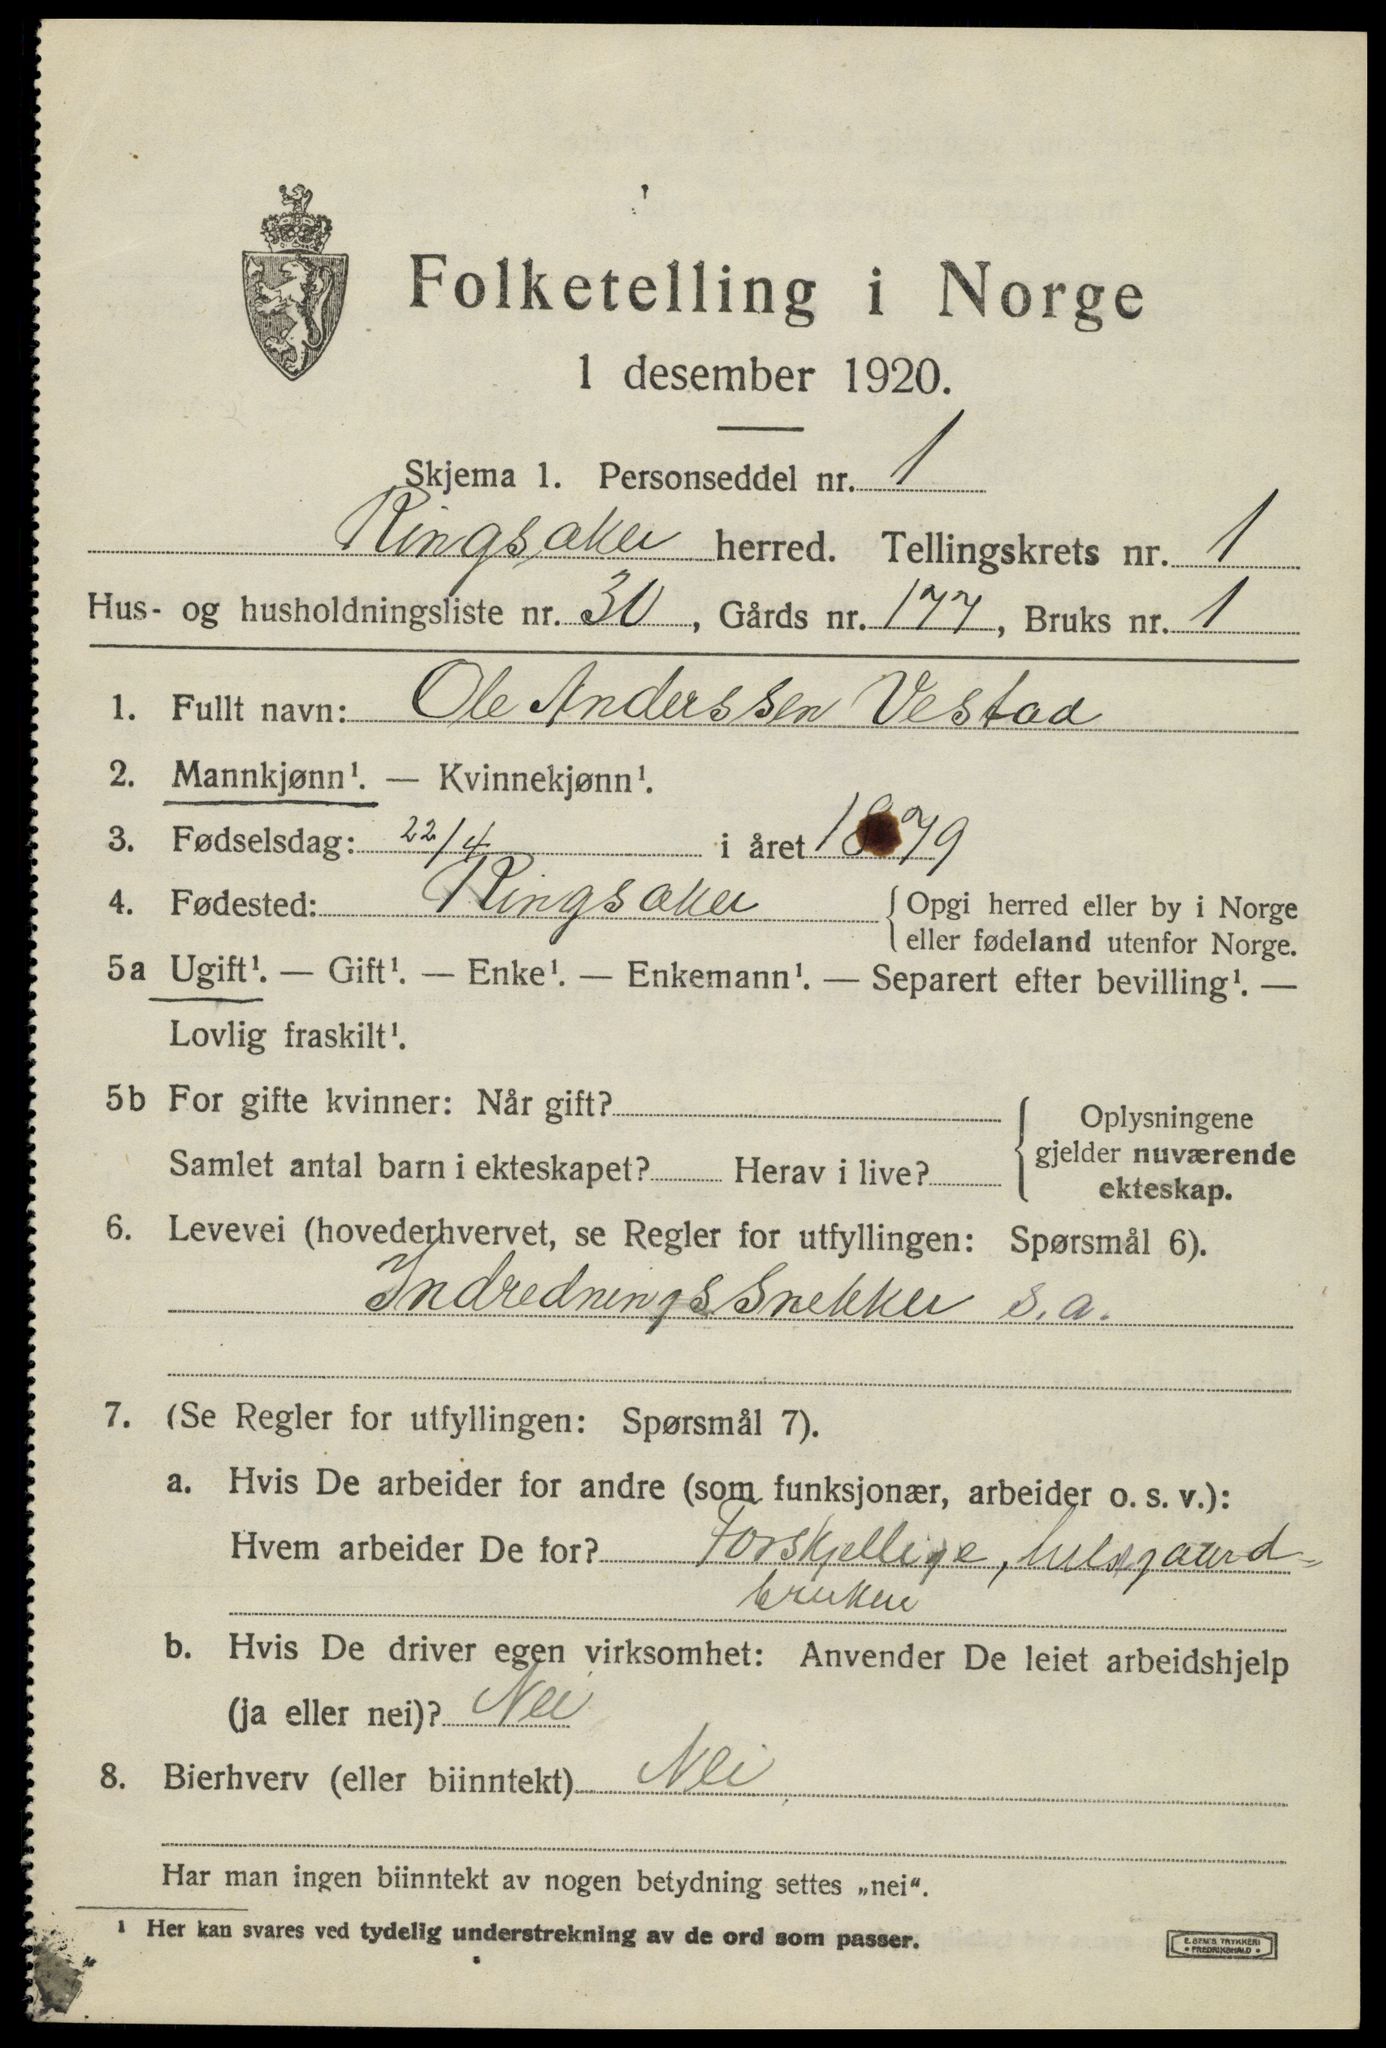 Folketelling i Norge
1 desember 1920.
Skjema 1. Personseddel nr. 1
Ringsaker herred. Tellingskrets nr. 1
Hus- og husholdningsliste nr. 30, Gårds nr. 177, Bruks nr. 1
1. Fullt navn: Ole Anderssen Vestad
2. Mannkjønn¹. — Kvinnekjønn¹.
3. Fødselsdag: 22/4 i året 1879
4. Fødested: Ringsaker { Opgi herred eller by i Norge
eller fødeland utenfor Norge.
5a Ugift¹. — Gift¹. — Enke¹. — Enkemann¹. — Separert efter bevilling¹. —
Lovlig fraskilt¹.
5b For gifte kvinner: Når gift? { Oplysningene
gjelder nuværende
ekteskap.
Samlet antal barn i ekteskapet? Herav i live?
6. Levevei (hovederhvervet, se Regler for utfyllingen: Spørsmål 6).
Indrednings Snekker s.a.
7. (Se Regler for utfyllingen: Spørsmål 7).
a. Hvis De arbeider for andre (som funksjonær, arbeider o. s. v.):
Hvem arbeider De for? Forskjellige,
bruker
b. Hvis De driver egen virksomhet: Anvender De leiet arbeidshjelp
(ja eller nei)? Nei
8. Bierhverv (eller biinntekt) Nei
Har man ingen biinntekt av nogen betydning settes „nei“.
¹ Her kan svares ved tydelig understrekning av de ord som passer.
E. SEM'S TRYKKERI
• FREDRIKSHALD •